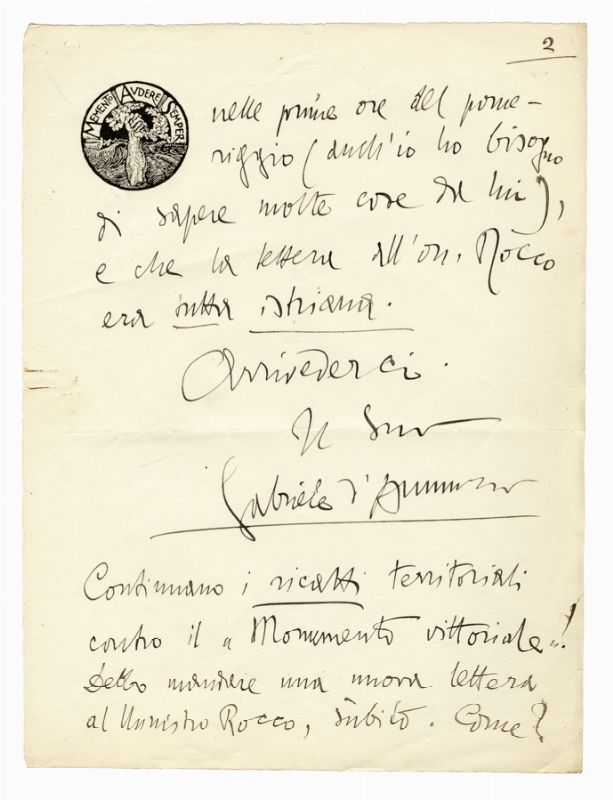 2
MEMENTO AVDERE SEMPER
nelle prime ore del pome-
riggio (anch'io ho bisogno
di sapere molte cose da lui),
e che la lettera all'on. Rocco
era tutta istriana.
Arrivederci.
Il Suo
Gabriele d'Annunzio
Continuano i ricatti territoriali
contro il « Monumento vittoriale »!
Debbo mandare una nuova lettera
al Ministro Rocco, sùbito. Come?